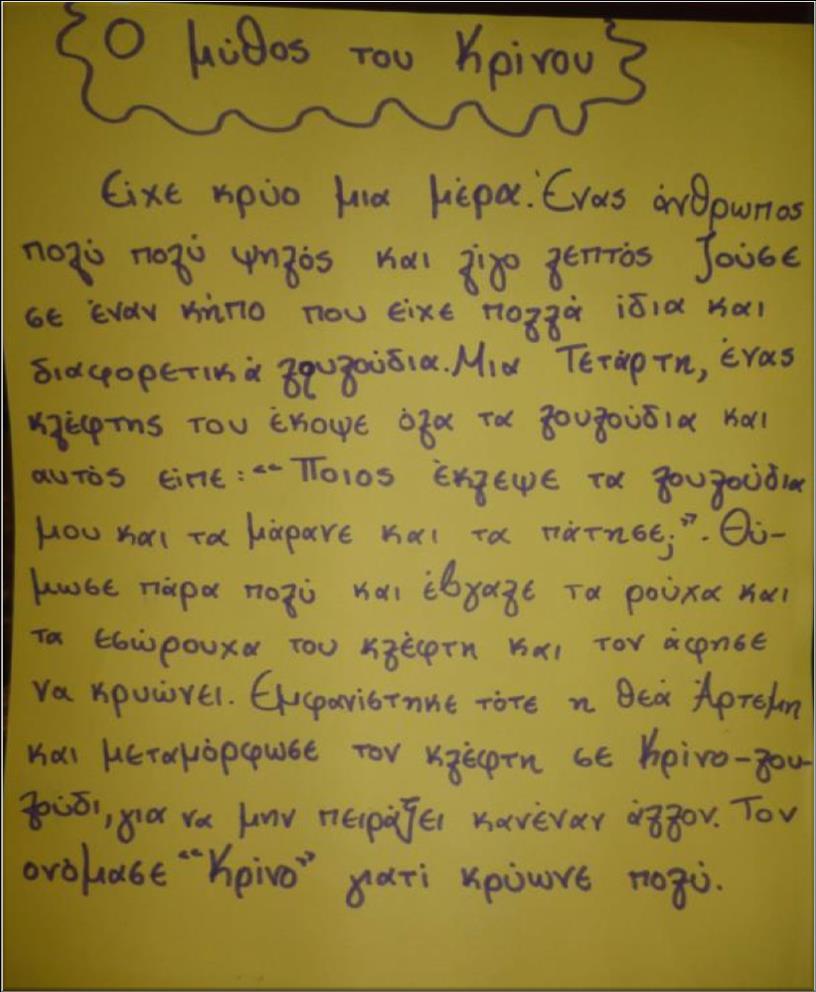 Ο μύθος του Κρίνου
Είχε κρύο μια μέρα. Ένας άνθρωπος
πολύ πολύ ψηλός και λίγο λεπτός ζούσε
σε έναν κήπο που είχε πολλά ίδια και
διαφορετικά λουλούδια. Μια Τετάρτη, ένας
κλέφτης του έκοψε όλα τα λουλούδια και
αυτός είπε: “Ποιος έκλεψε τα λουλούδια
μου και τα μάρανε και τα πάτησε;”. Θύ-
μωσε πάρα πολύ και έβγαλε τα ρούχα και
τα εσώρουχα του κλέφτη και τον άφησε
να κρυώνει. Εμφανίστηκε τότε η θεά Άρτεμη
και μεταμόρφωσε τον κλέφτη σε Κρίνο-λου-
λούδι, για να μην πειράζει κανέναν άλλον. Τον
ονόμασε “Κρίνο” γιατί κρύωνε πολύ.